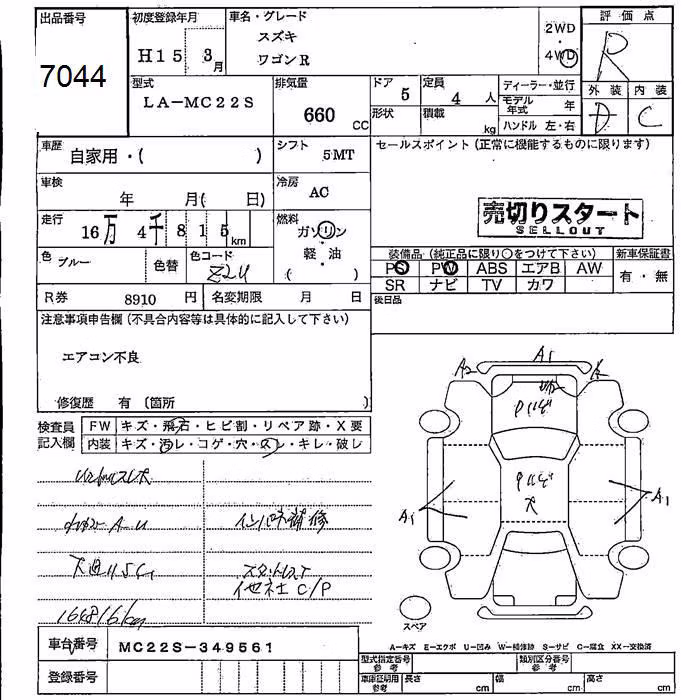 出品番号
7044
初度登録年月
H15 3月
車名・グレード
スズキ
ワゴンR
2WD
・
4WD
評価点
R
外装 内装
D C
型式
LA-MC22S
排気量
660 cc
ドア 5
定員 4 人
形状
積載 kg
ディーラー・並行
モデル年式 年
ハンドル 左・右
車歴
自家用・( )
シフト
5MT
セールスポイント (正常に機能するものに限ります)
車検
年 月( 日)
冷房
AC
走行
16万 4千 815 km
燃料
ガソリン
・
軽油
( )
売切りスタート
SELLOUT
色
ブルー
色替
色コード
Z2U
装備品 (純正品に限り○をつけて下さい)
新車保証書
PS PW ABS エアB AW
SR ナビ TV カワ
有・無
後日品
R券 8910 円
名変期限 月 日
注意事項申告欄 (不具合内容等は具体的に記入して下さい)
エアコン不良
修復歴 有 〔箇所 〕
検査員
記入欄
FW キズ・飛石・ヒビ割・リペア跡・X要
内装 キズ・汚レ・コゲ・穴・スレ・キレ・破レ
インパネ補修
他社 C/P
164816km
A2 A1
Pハゲ
Pハゲ
A1 A1
スペア
車台番号
MC22S-349561
登録番号
A-キズ E-エクボ U-凹み W-補修跡 S-サビ C-腐食 XX-交換済
型式指定番号
参考
類別区分番号
参考
車庫証明用
参考
長さ cm
幅 cm
高さ cm